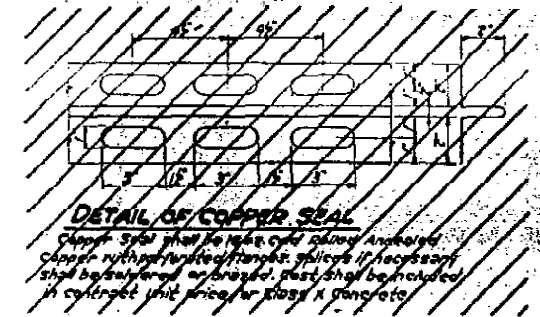 4½" 4½" 2"
3" 1½" 3" 1½" 3"
DETAIL OF COPPER SEAL
Copper Seal shall be 16 oz. Cold Rolled Annealed
Copper with perforated flanges. Splices if necessary
shall be soldered or brazed. Cost shall be included
in contract unit price for Class X Concrete